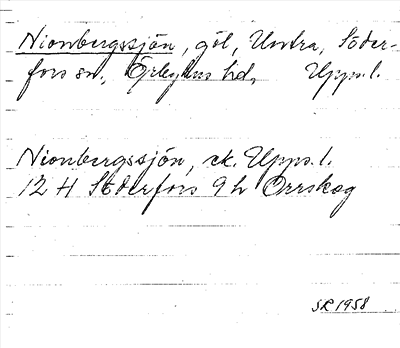 Nionbergssjön, göl, Untra, Söder-
fors sn., Örbyhus hd, Upps.l.
Nionbergssjön, ek. Upps.l.
12 H Söderfors 9 h Orrskog
SR 1958